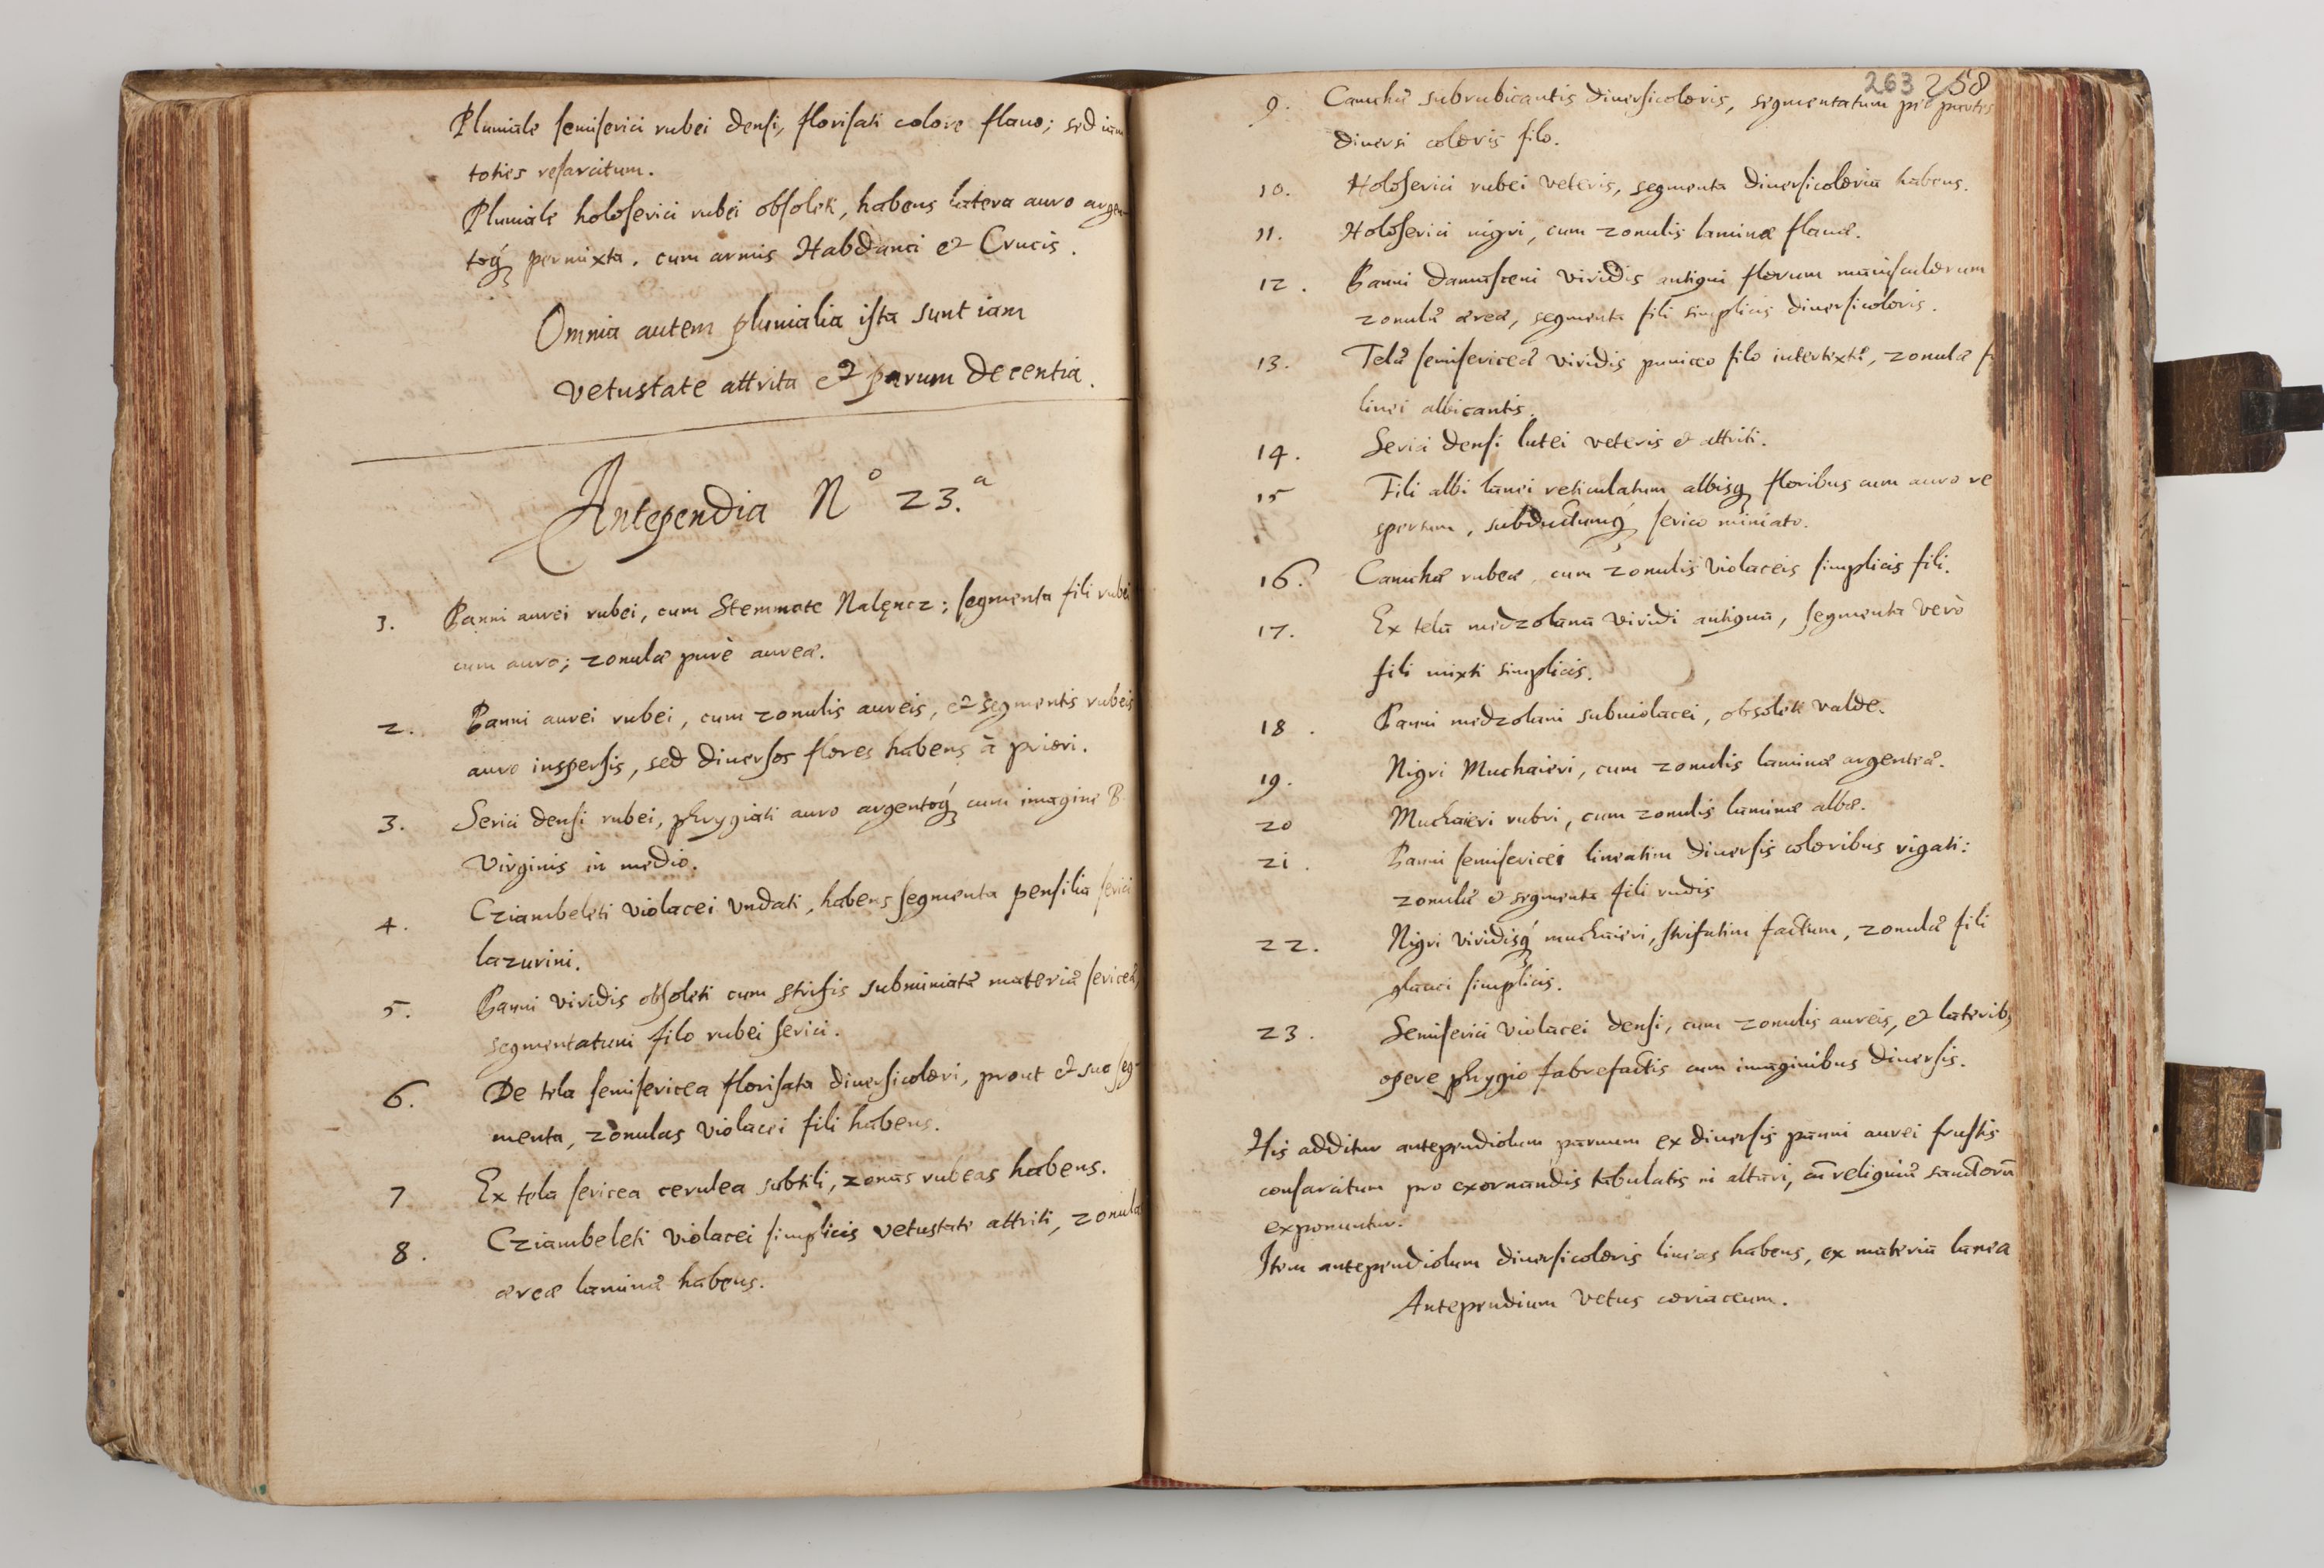 Pluniale semiserici rubei densi, florisati colore flauo; sed iam
toties resarcitum.
Pluuiale holoserici rubei obsoleti, habens latera auro argen-
toq́ꝫ permixta. cum armis Habdanci et Crucis.
Omnia autem pluuialia ista sunt iam
vetustate attrita et parum decentia.
Antependia Nº 23.ª
3. Panni aurei rubei, cum Stemmate Nalęncz; segmenta fili rubei
cum auro; zonulæ purè aureæ.
2. Panni aurei rubei, cum zonulis aureis, et segmentis rubeis
auro inspersis, sed diuersos flores habens à priori.
3. Serici densi rubei, phrygiati auro argentoq́ꝫ cum imagine B.
Virginis in medio.
4. Cziambeleti violacei vndati, habens segmenta pensilia serici
lazurini.
5. Panni viridis obsoleti cum strifis subminiatæ materiæ sericeæ,
segmentatum filo rubei serici.
6. De tela semisericea florisata diuersicolori, prout et sua seg-
menta, zonulas violacei fili habens.
7 Ex tela sericea cerulea subtili, zonas rubeas habens.
8. Cziambeleti violacei simplicis vetustate attriti, zonulas
æreæ laminæ habens.
263 258
9. Camchæ subrubicantis diuersicoloris, segmentatum pro parte
diuersi coloris filo.
10. Holoserici rubei veteris, segmenta diuersicoloria habens.
11. Holoserici nigri, cum zonulis laminæ flauæ.
12. Panni damasceni viridis antiqui florum maiusculorum
zonulæ æreæ, segmenta fili simplicis diuersicoloris.
13. Telæ semisericeæ viridis puniceo filo intertextæ, zonulæ
linei albicantis.
14. Serici densi lutei veteris et attriti.
15 Fili albi lanei reticulatum albisqꝫ floribus cum auro re
spersum, subductumq́ꝫ serico miniato.
16. Camchæ rubeæ, cum zonulis violaceis simplicis fili.
17. Ex tela medzolana viridi antiqua, segmenta verò
fili mixti simplicis.
18. Panni medzolani subuiolacei, obsoleti valde.
19. Nigri Muchaieri, cum zonulis laminæ argenteæ.
20 Muchaieri rubri, cum zonulis laminæ albæ.
21. Panni semisericei lineatim diuersis coloribus rigati:
zonulæ et segmenta fili rudis
22. Nigri viridisq́ꝫ muchaieri, strifatim factum, zonulæ fili
glauci simplicis.
23. Semiserici violacei densi, cum zonulis aureis, et lateribꝫ
opere phrygio fabrefactis cum imaginibus diuersis.
His additur antependiolum paruum ex diuersis panni aurei frustis
consarcitum pro exornandis tabulatis in altari, cū reliquiæ sanctorū
exponuntur.
Item antependiolum diuersicoloris lineas habens, ex materia lanea
Antependium vetus coriaceum.